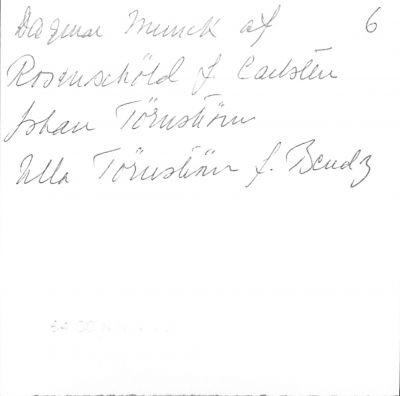 Dagmar Munck af 6
Rosenschöld f. Carlstén
Johan Törnström
Ulla Törnström f. Bendz